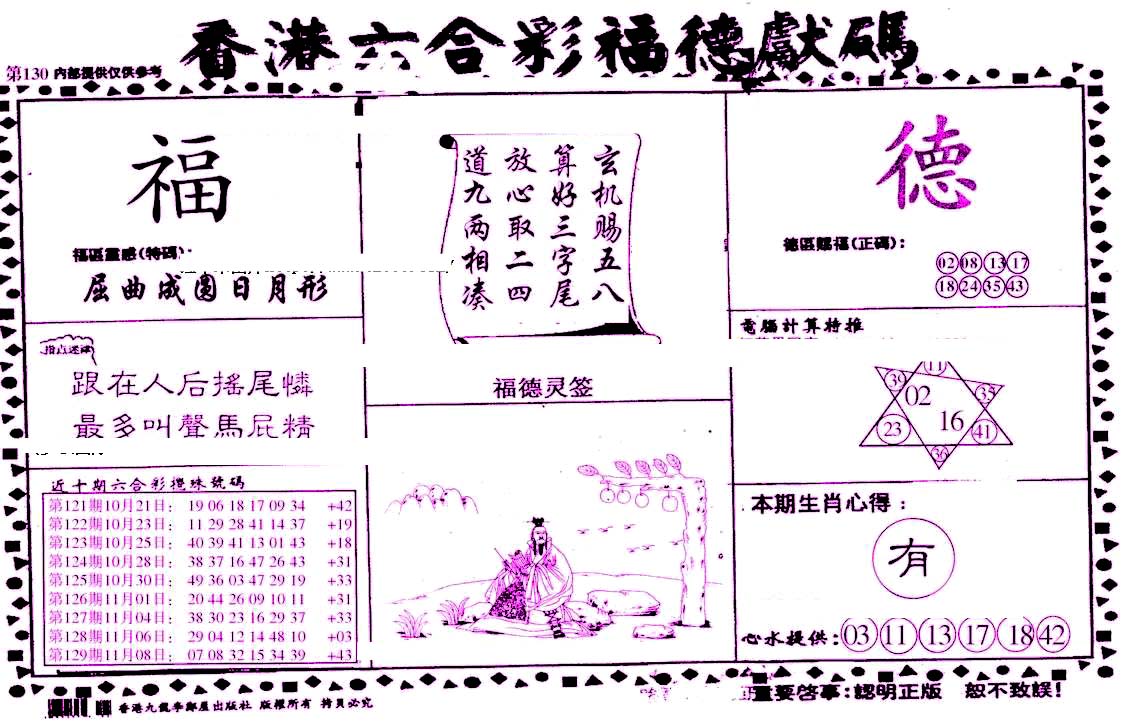 香港六合彩福德獻碼
第130 内部提供仅供参考
福
福區靈感(特碼):
屈曲成圓日月形
指点迷津
跟在人后搖尾憐
最多叫聲馬屁精
近十期六合彩攪珠號碼
第121期10月21日: 19 06 18 17 09 34 +42
第122期10月23日: 11 29 28 41 14 37 +19
第123期10月25日: 40 39 41 13 01 43 +18
第124期10月28日: 38 37 16 47 26 43 +31
第125期10月30日: 49 36 03 47 29 19 +33
第126期11月01日: 20 44 26 09 10 11 +31
第127期11月04日: 38 30 23 16 29 37 +33
第128期11月06日: 29 04 12 14 48 10 +03
第129期11月08日: 07 08 32 15 34 39 +43
玄机赐五八
算好三字尾
放心取二四
道九两相凑
福德灵签
德
德區賜福(正碼):
02 08 13 17
18 24 35 43
電腦計算特推
11
39 02 35
23 16 41
36
本期生肖心得:
有
心水提供: 03 11 13 17 18 42
重要啓事:認明正版 恕不致誤!
香港九龍李鄭屋出版社 版權所有 拷貝必究